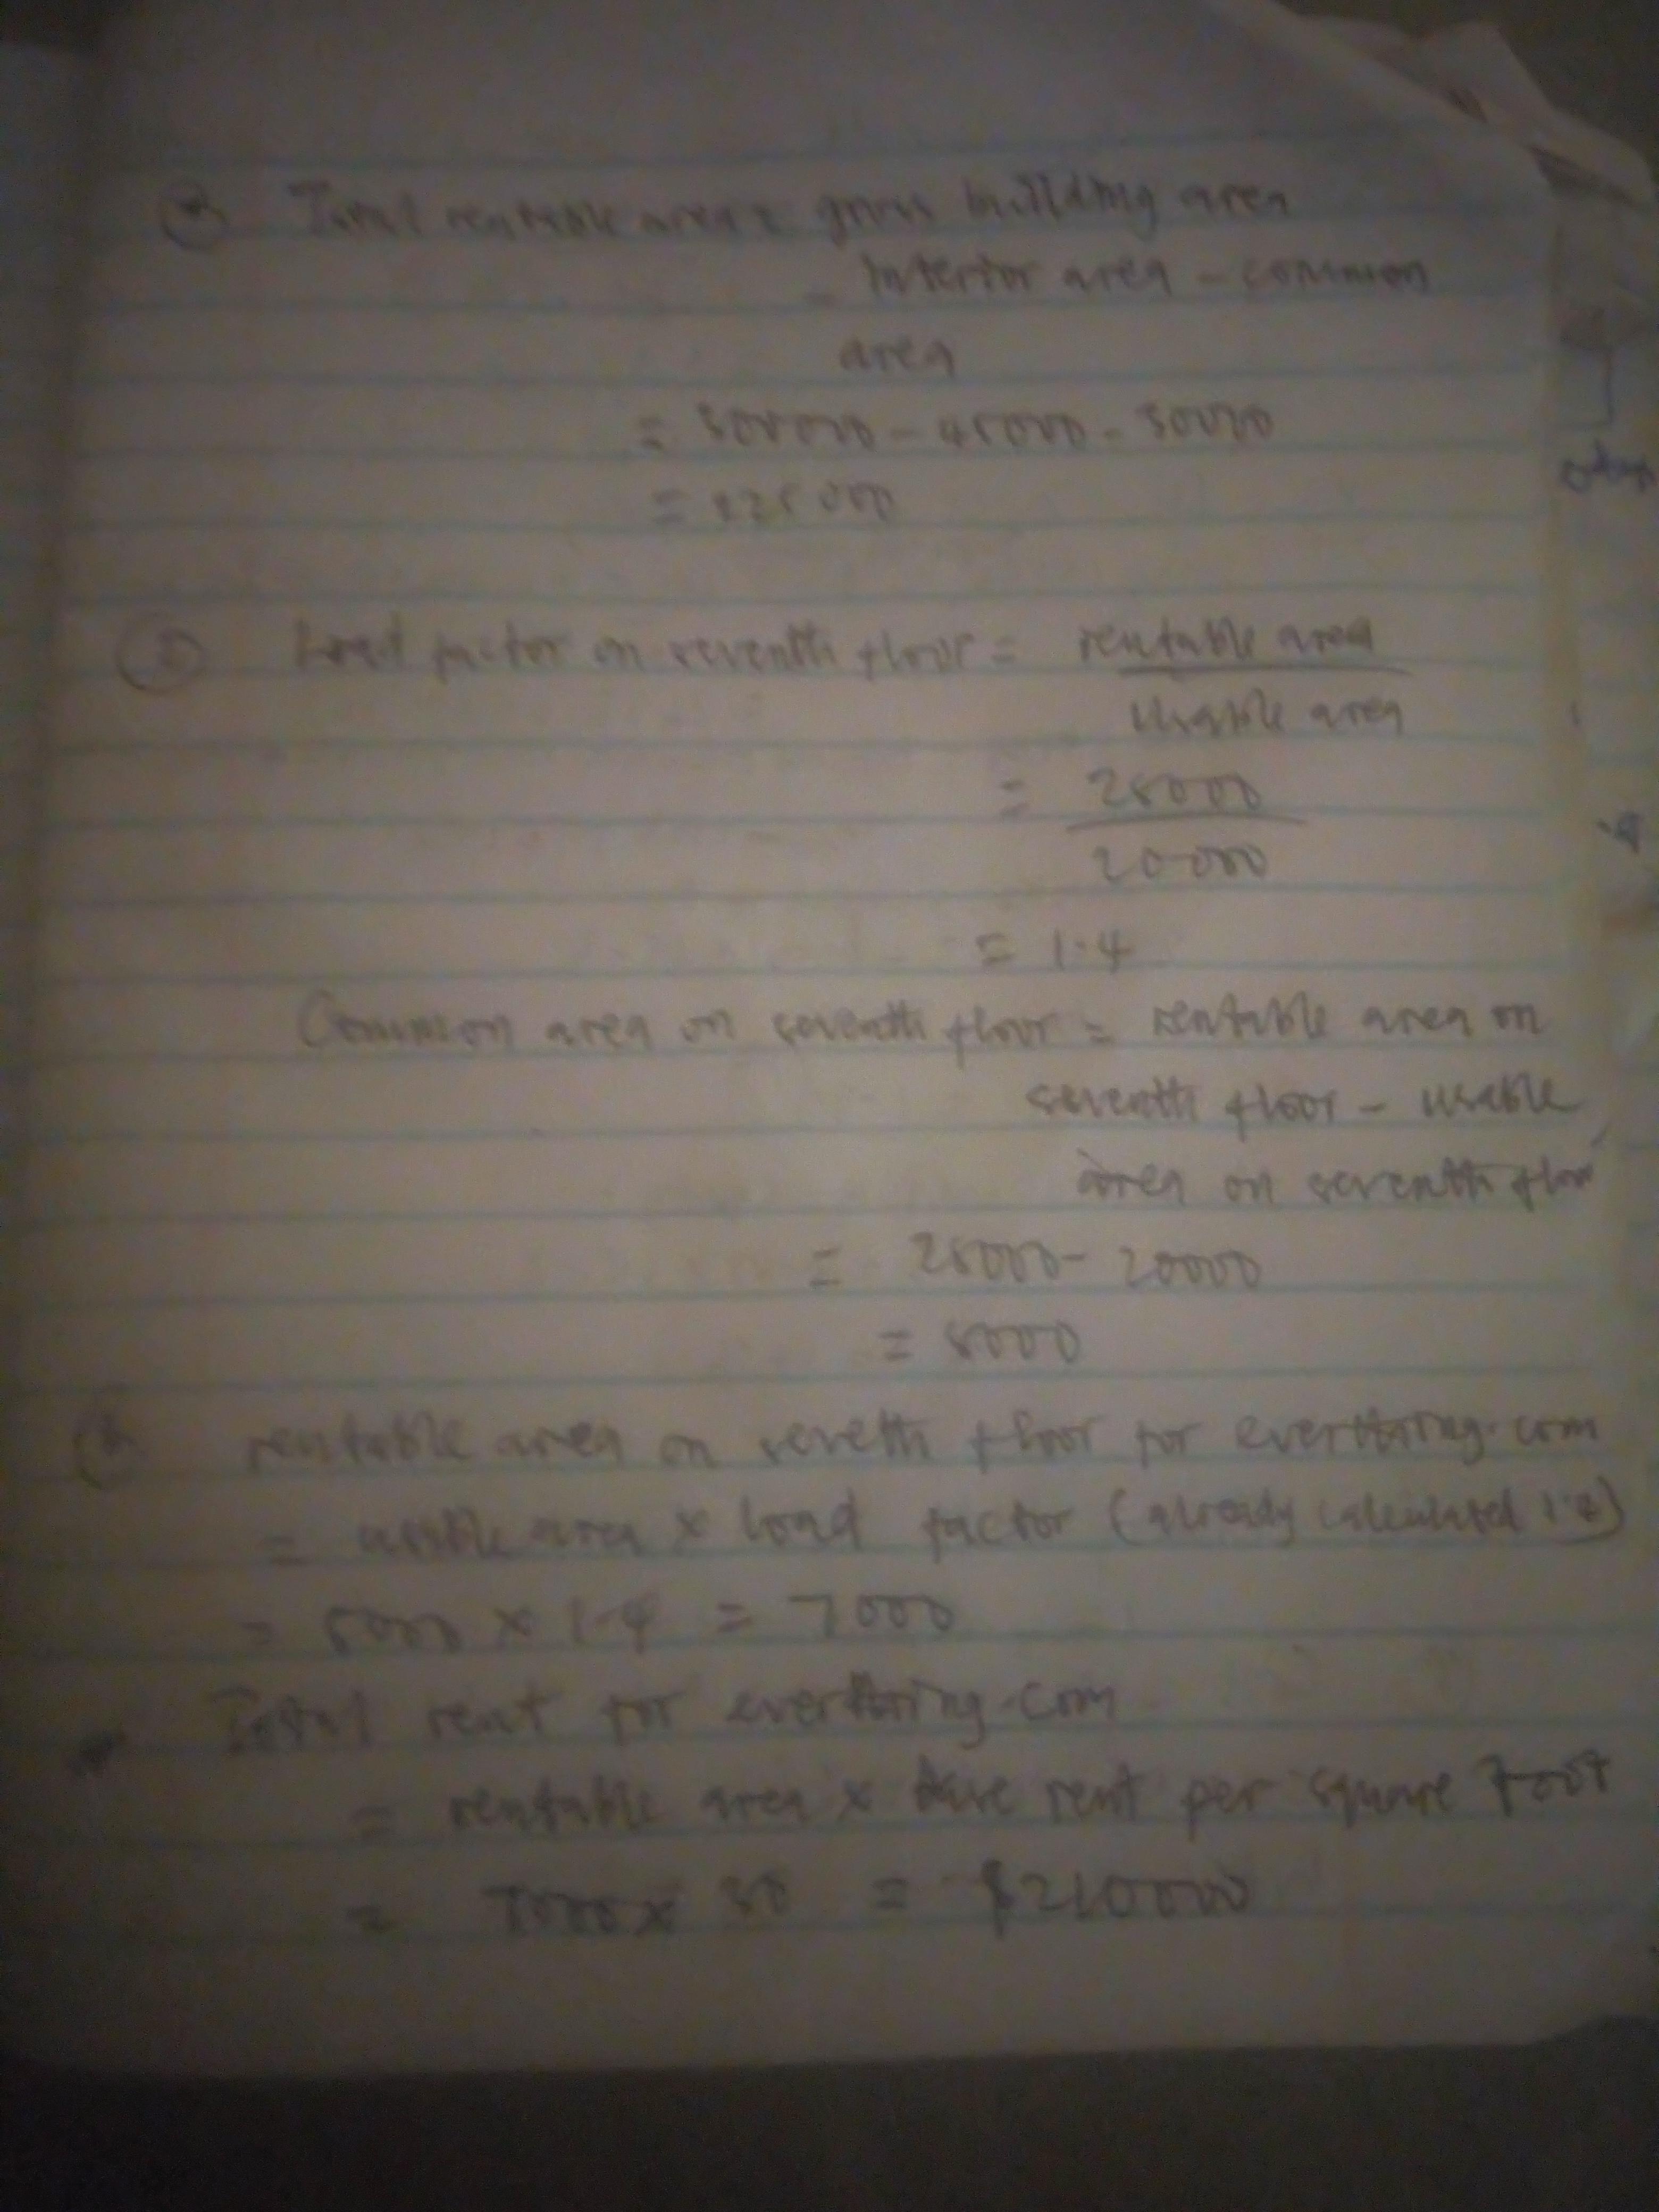 Total rentable area = gross building area
- Interior area - common
area
= - 45000 - 30000
= 
Load factor on seventh floor = rentable area
Usable area
= 28000
20000
= 1.4
Common area on seventh floor = rentable area on
seventh floor - usable
area on seventh floor
= 28000 - 20000
= 8000
rentable area on seveth floor for everthing.com
= usable area x load factor (already calculated 1.4)
= 5000 x 1.4 = 7000
Total rent for everthing.com
= rentable area x base rent per square foot
= 7000 x 30 = $210000